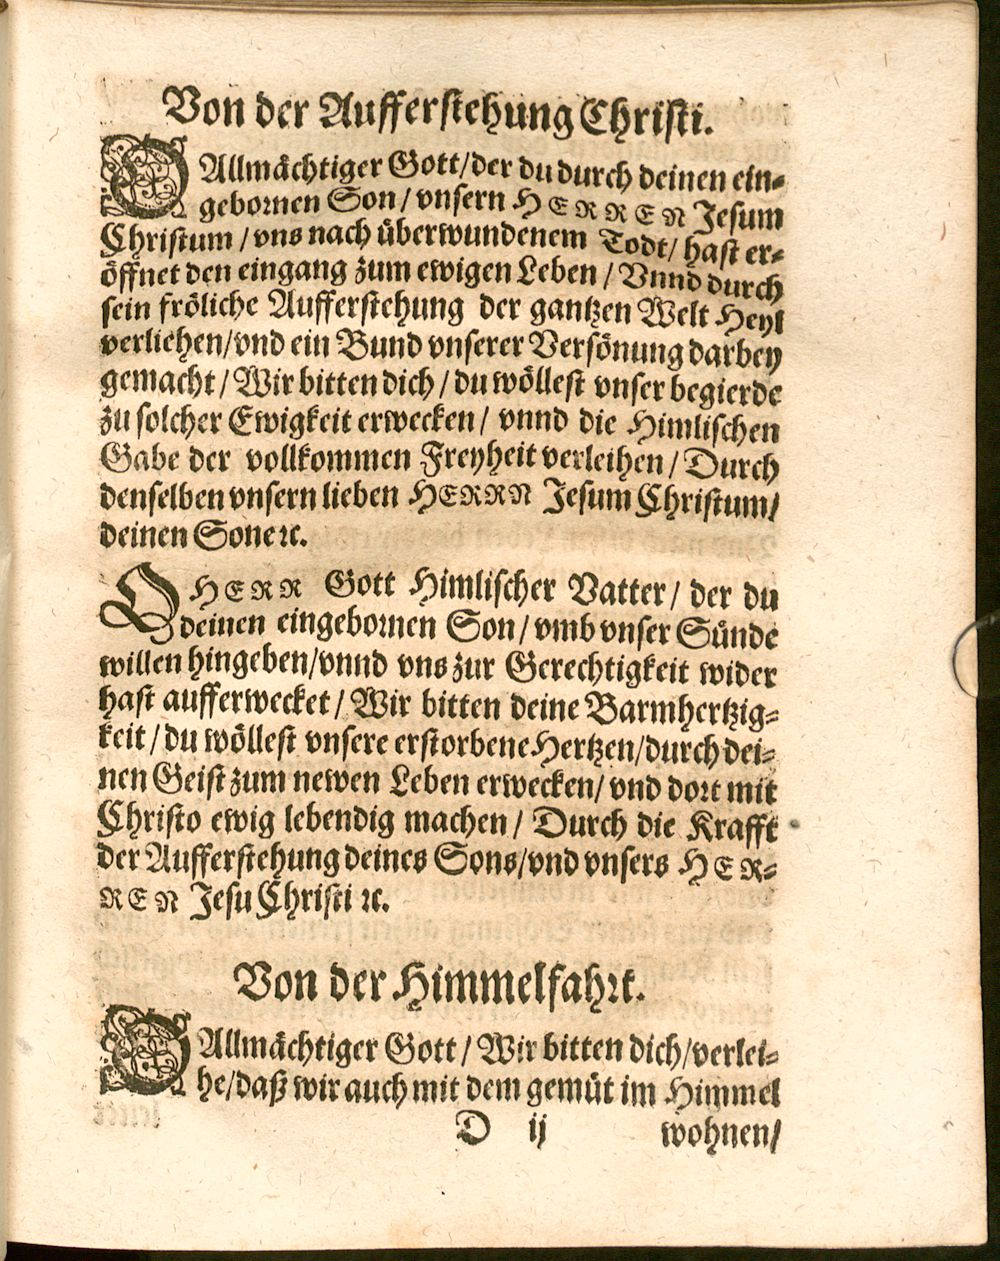 Von der Aufferstehung Christi.
O Allmächtiger Gott/der du durch deinen ein-
gebornen Son/vnsern HERREN Jesum
Christum/vns nach überwundenem Todt/hast er-
öffnet den eingang zum ewigen Leben/Vnnd durch
sein fröliche Aufferstehung der gantzen Welt Heyl
verliehen/vnd ein Bund vnserer Versönung darbey
gemacht/Wir bitten dich/du wöllest vnser begierde
zu solcher Ewigkeit erwecken/vnnd die Himlischen
Gabe der vollkommen Freyheit verleihen/Durch
denselben vnsern lieben HERRN Jesum Christum/
deinen Sone ꝛc.
O HERR Gott Himlischer Vatter/der du
deinen eingebornen Son/vmb vnser Sünde
willen hingeben/vnnd vns zur Gerechtigkeit wider
hast aufferwecket/Wir bitten deine Barmhertzig-
keit/du wöllest vnsere erstorbene Hertzen/durch dei-
nen Geist zum newen Leben erwecken/vnd dort mit
Christo ewig lebendig machen/Durch die Krafft
der Aufferstehung deines Sons/vnd vnsers HER-
REN Jesu Christi ꝛc.
Von der Himmelfahrt.
O Allmächtiger Gott/Wir bitten dich/verlei-
he/daß wir auch mit dem gemüt im Himmel
D ij wohnen/